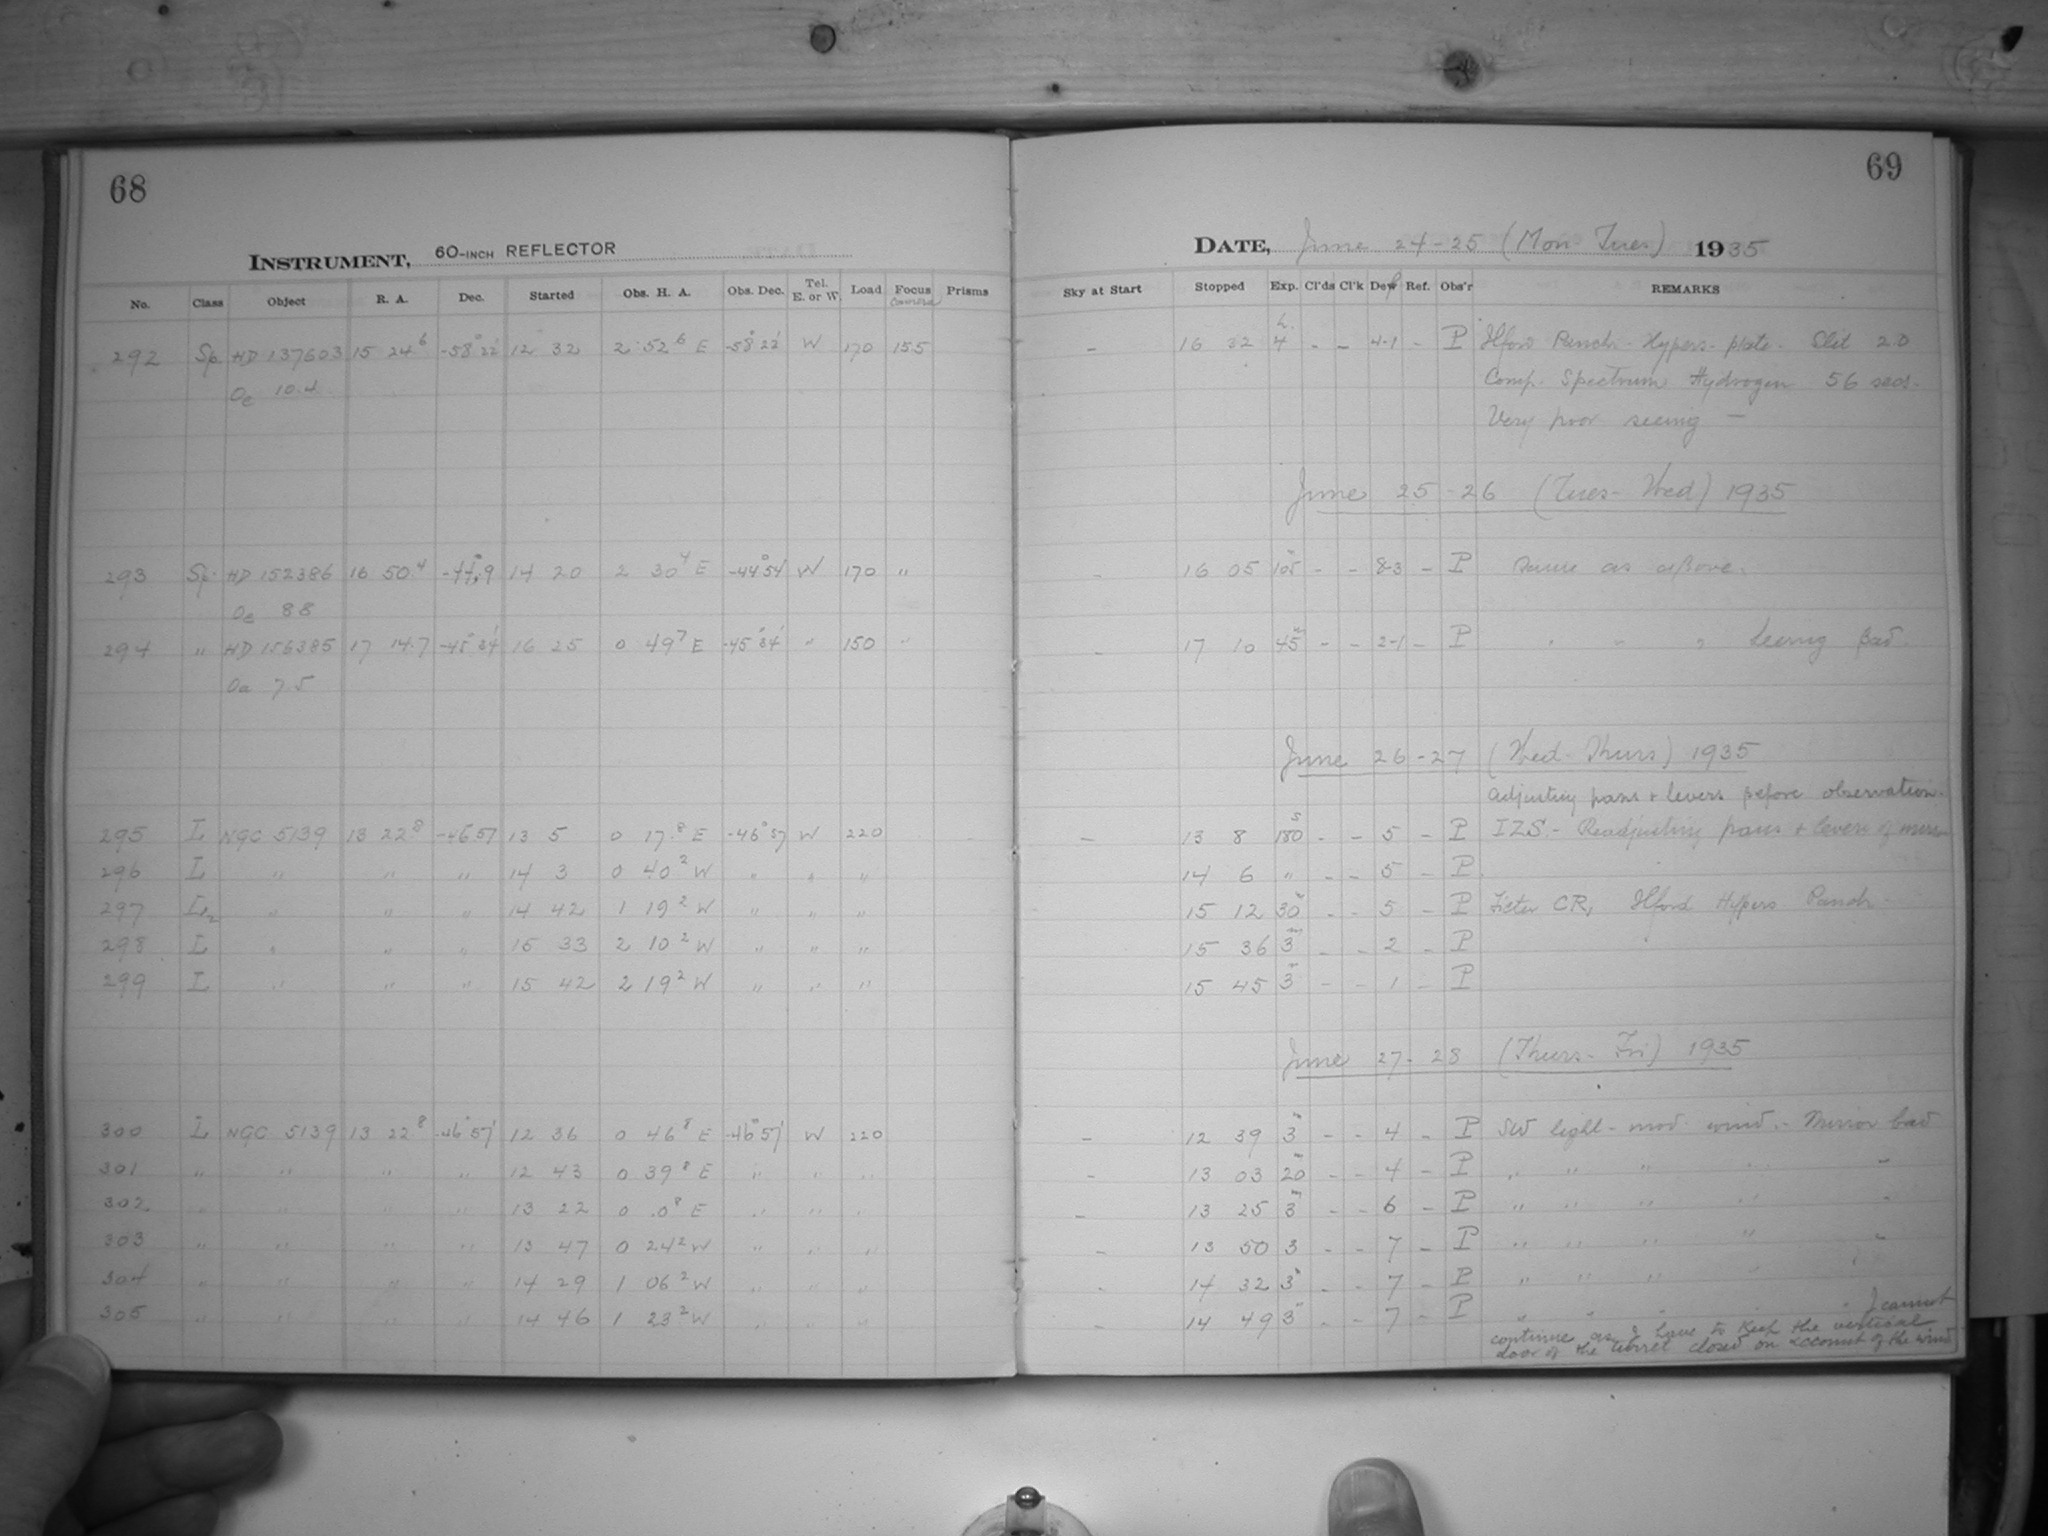 68
INSTRUMENT, 60-INCH REFLECTOR
No. Class Object R. A. Dec. Started Obs. H. A. Obs. Dec. Tel. E. or W. Load Focus Camera Prisms
292 Sp. HD 137603 15 24⁶ -58° 22' 12 32 2 52⁶ E -58° 22' W 170 155
Oe 10.4
293 Sp. HD 152386 16 50.4 -44°.9 14 20 2 30⁴ E -44° 54' W 170 "
Oe 8 8
294 " HD 156385 17 14.7 -45° 34' 16 25 0 49⁷ E -45° 34' " 150 "
Oa 7 5
295 L NGC 5139 13 22⁸ -46 57 13 5 0 17.⁸ E -46° 57 W 220
296 L " " " 14 3 0 40² W " " "
297 L₂ " " " 14 42 1 19² W " " "
298 L " " " 15 33 2 10² W " " "
299 L " " " 15 42 2 19² W " " "
300 L NGC 5139 13 22⁸ -46° 57' 12 36 0 46⁸ E -46° 57' W 220
301 " " " " 12 43 0 39⁸ E " " "
302 " " " " 13 22 0 .0⁸ E " " "
303 " " " " 13 47 0 24² W " " "
304 " " " " 14 29 1 06² W " " "
305 " " " " 14 46 1 23² W " " "
69
DATE, June 24-25 (Mon-Tues) 1935
Sky at Start Stopped Exp. Cl'ds Cl'k Dew Ref. Obs'r REMARKS
- 16 32 4h - - 4-1 - P Ilford Panch. Hypers. plate. Slit 2.0
Comp. Spectrum Hydrogen 56 secs.
Very poor seeing -
June 25-26 (Tues-Wed) 1935
- 16 05 105m - - 8-3 - P Same as above.
- 17 10 45m - - 2-1 - P " " " Seeing bad.
June 26-27 (Wed-Thurs) 1935
Adjusting pans + levers before observation.
- 13 8 180s - - 5 - P IZS.- Readjusting pans + levers of mirror
14 6 " - - 5 - P
15 12 30m - - 5 - P Filter CR, Ilford Hypers Panch -
15 36 3m - - 2 - P
15 45 3m - - 1 - P
June 27-28 (Thurs-Fri) 1935
- 12 39 3m - - 4 - P SW light - mod. wind. - Mirror bad
- 13 03 20m - - 4 - P " " " " "
- 13 25 3m - - 6 - P " " " " "
- 13 50 3 - - 7 - P " " " " "
- 14 32 3m - - 7 - P " " " " "
- 14 49 3m - - 7 - P " " " " " I cannot
continue as I have to keep the vertical
door of the turret closed on account of the wind